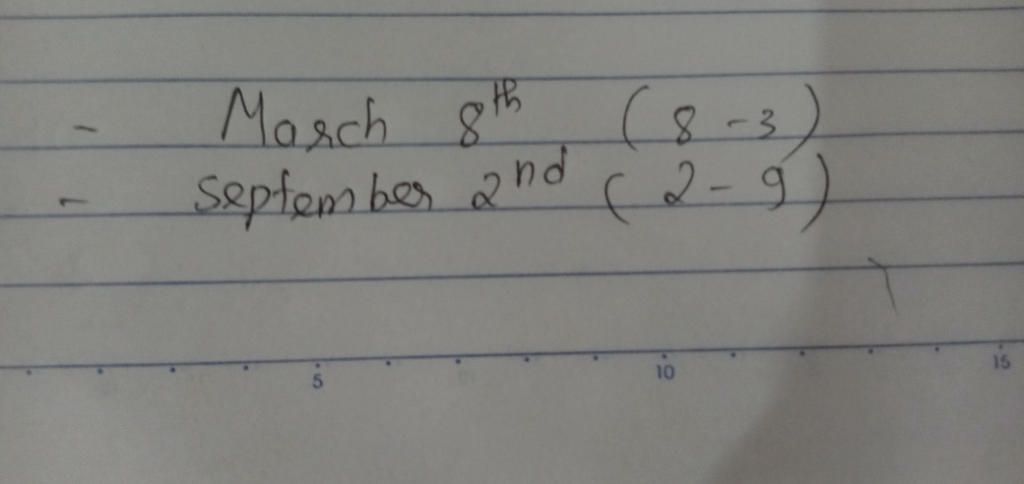 - March 8th (8-3)
- September 2nd (2-9)
5 10 15